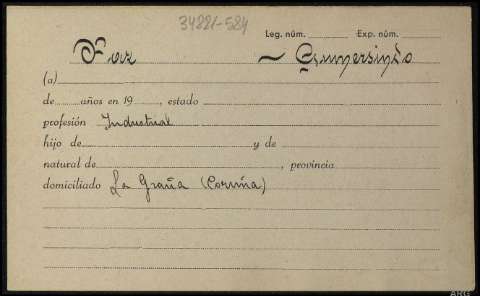 34221-584
Leg. núm. Exp. núm.
Foz ~ Gumersindo
(a)
de años en 19 , estado
profesión Industrial
hijo de y de
natural de , provincia
domiciliado La Graña (Coruña)
ARG